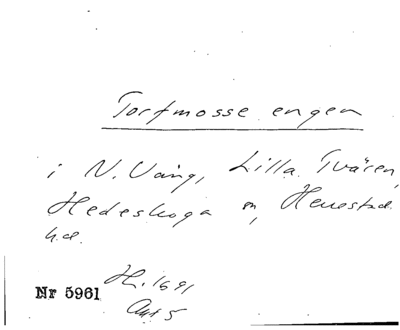 Torfmosse engen
i N. Vång, Lilla Tvären,
Hedeskoga sn, Herrestad
hd.
H. 1691
Akt 5
Nr 5961